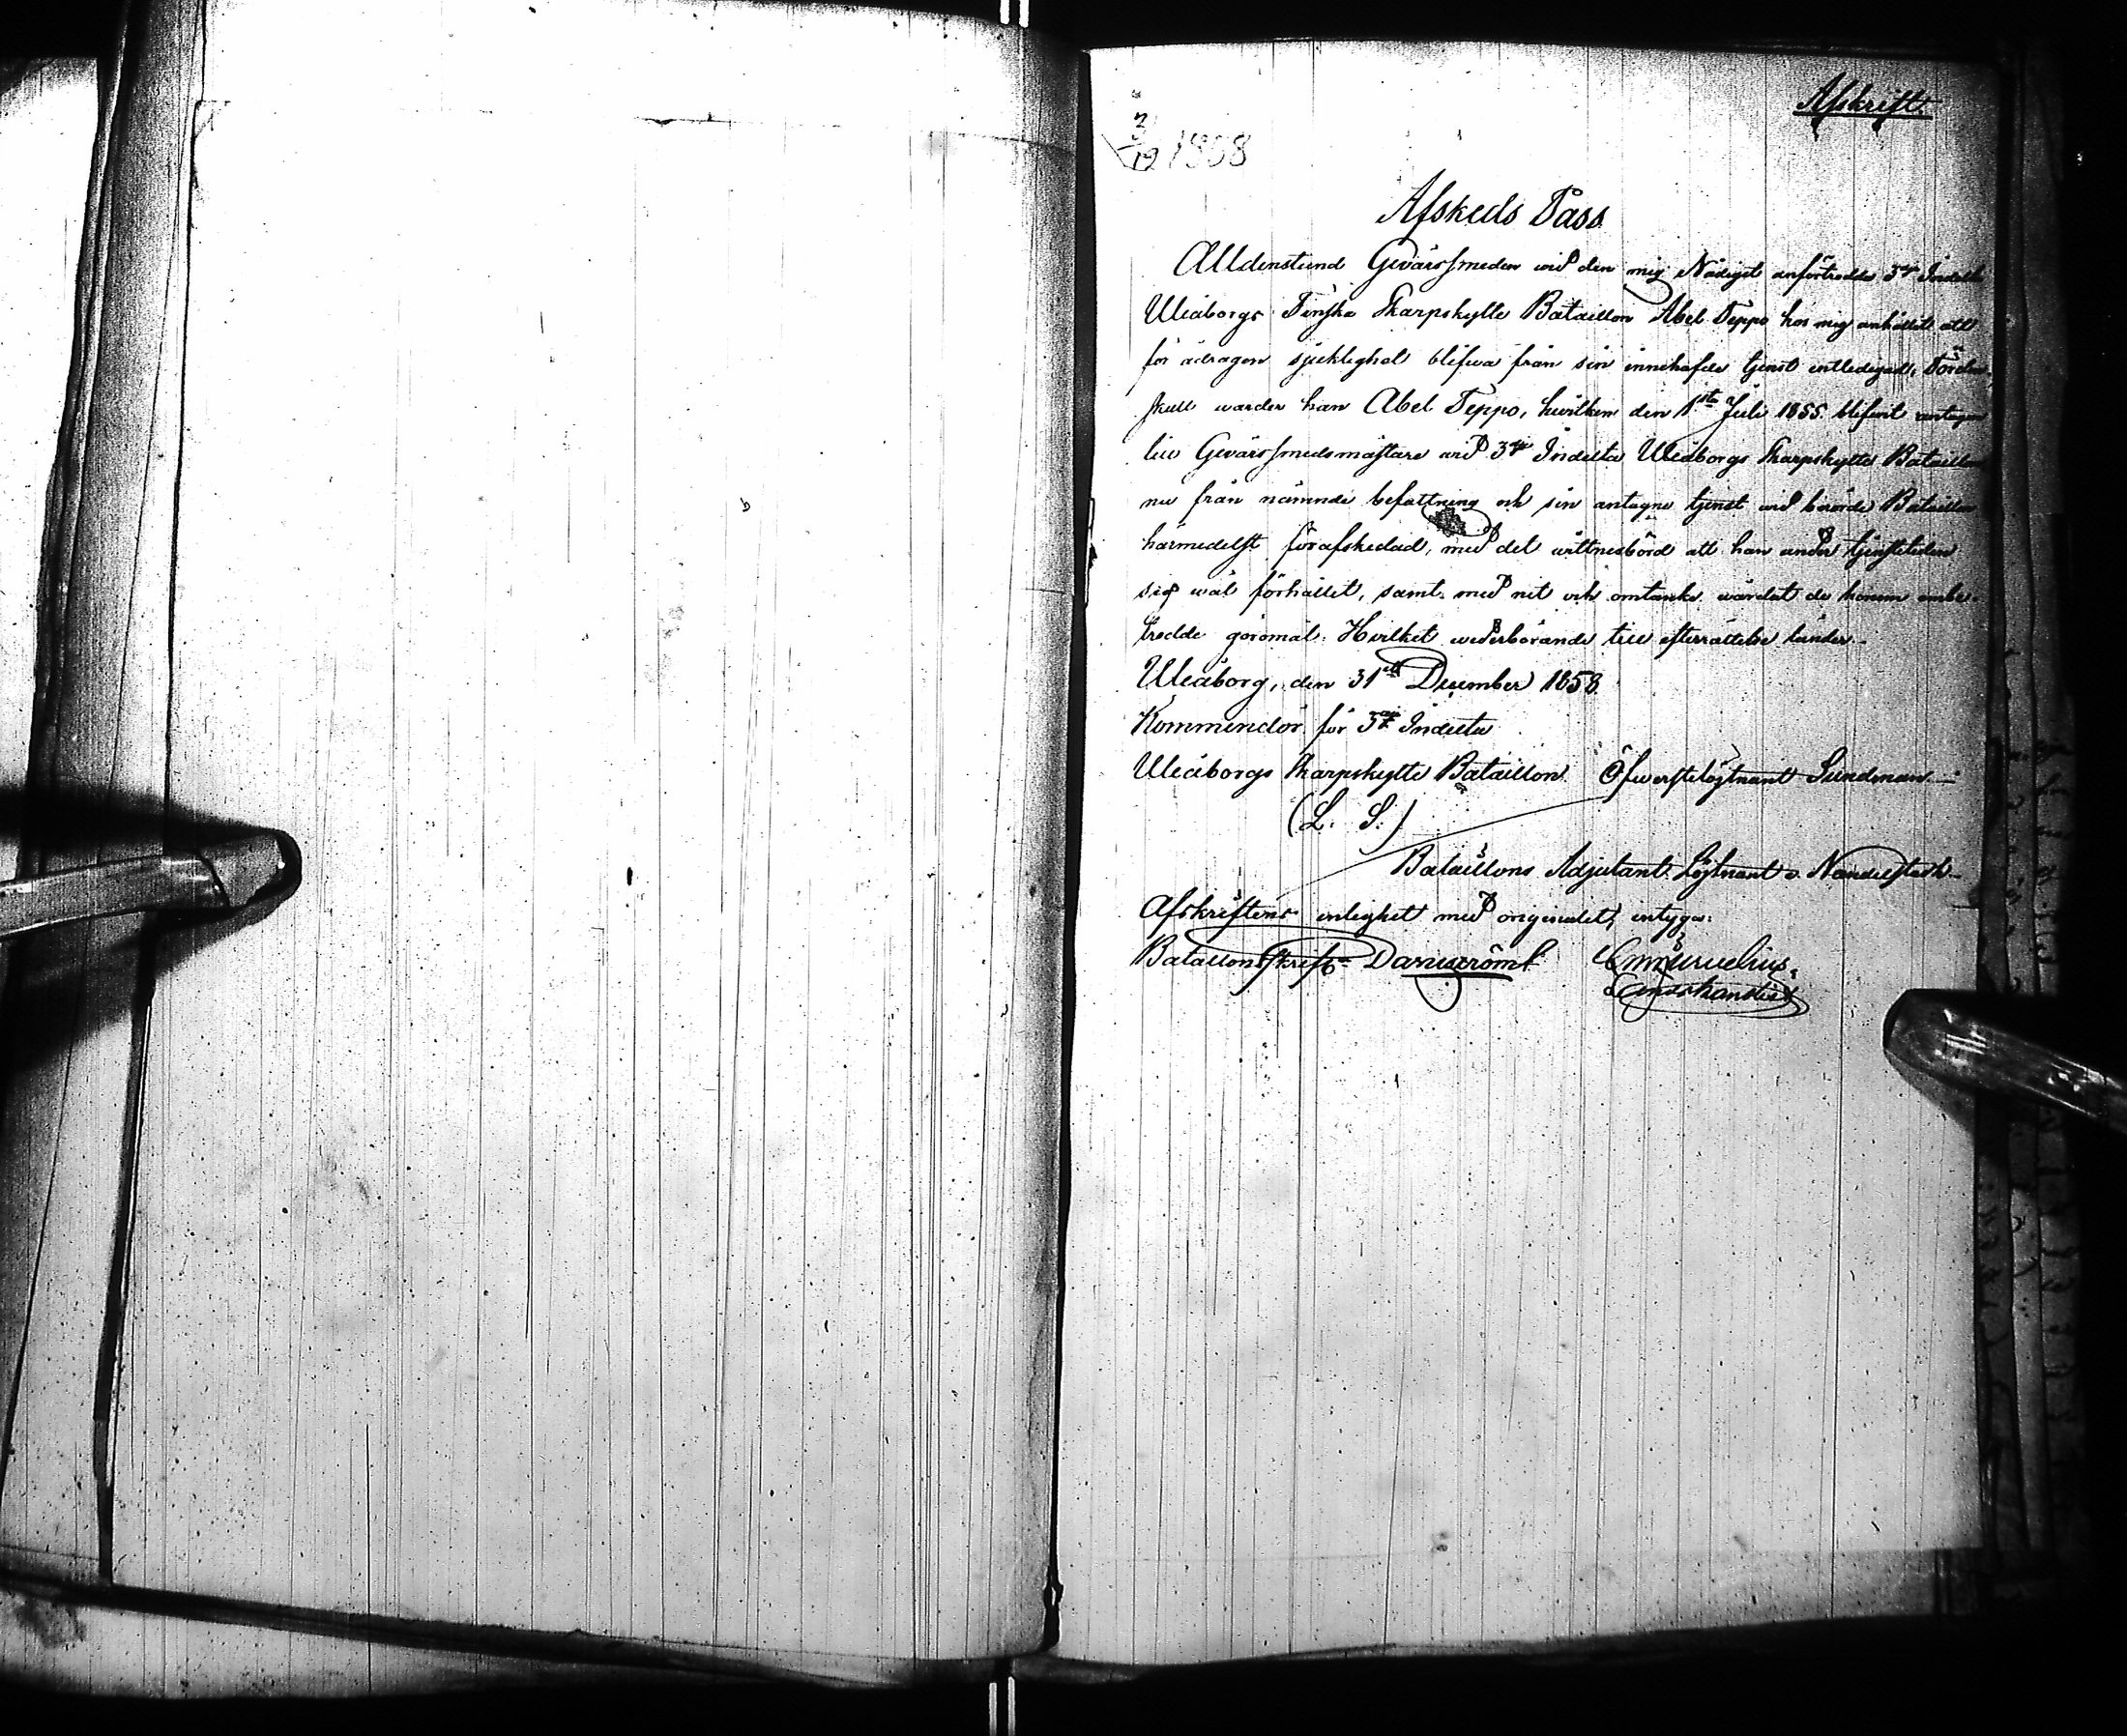 Afskrift.
3/12 1858
Afskeds Pass.
Alldenstund Gevärssmeden wid den mig Nådigst anförtrodda 3dje Indelta
Uleåborgs Finska Skarpskytte Bataillon Abel Teppo hos mig anhållit att
för ådragen sjuklighet blifwa från sin innehafde tjenst entledigad; Fördens-
skull warder han Abel Teppo, hwilken den 1sta Juli 1855 blifwit antagen
till Gevärssmedsmästare wid 3dje Indelta Uleåborgs Skarpskytte Bataillon
nu från nämnde befattning och sin antagne tjenst wid berörde Bataillon
härmedelst förafskedad, med det wittnesbörd att han under tjenstetiden
sig wäl förhållit, samt med nit och omtanke wårdat de honom ombe-
trodde göromål. Hvilket wederbörande till efterrättelse länder.
Uleåborg, den 31 December 1858.
Kommendör för 3dje Indelta
Uleåborgs Skarpskytte Bataillon. Öfwerstelöjtnant Sundman
(L. S.)
Bataillons Adjutant Löjtnant v.
Afskriftens enlighet med originalet, intyga:
Bataillons Skrifv.